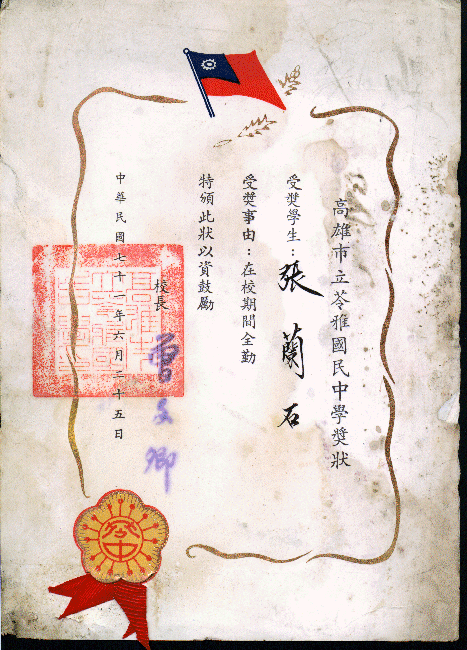 高雄市立苓雅國民中學獎狀
受獎學生：張蘭石
受獎事由：在校期間全勤
特頒此狀以資鼓勵
校長
中華民國七十一年六月二十五日